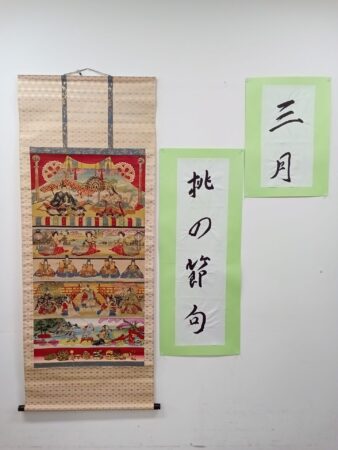 三月
桃の節句